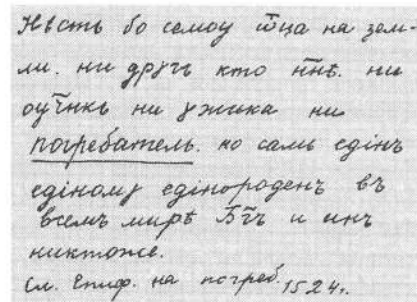 Нѣсть бо семоу ѿца на зем-
ли. ни другъ кто нн҃ѣ. ни
оуч҃нкъ ни ужика ни
погребатель. но самъ едінъ
едіному едінороденъ въ
всемъ мирѣ Бг҃ъ и инъ
никтоже.
См. Епиф. на погреб. 1524.